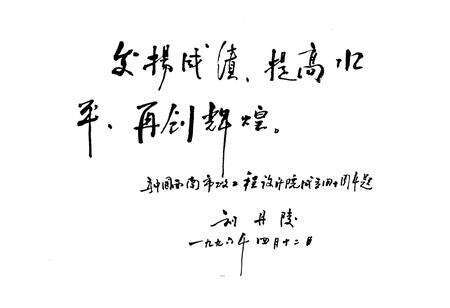 发揚成绩、提高水
平、再创辉煌。
为中国西南市政工程设计院成立四十周年题
一九九六年四月十二日